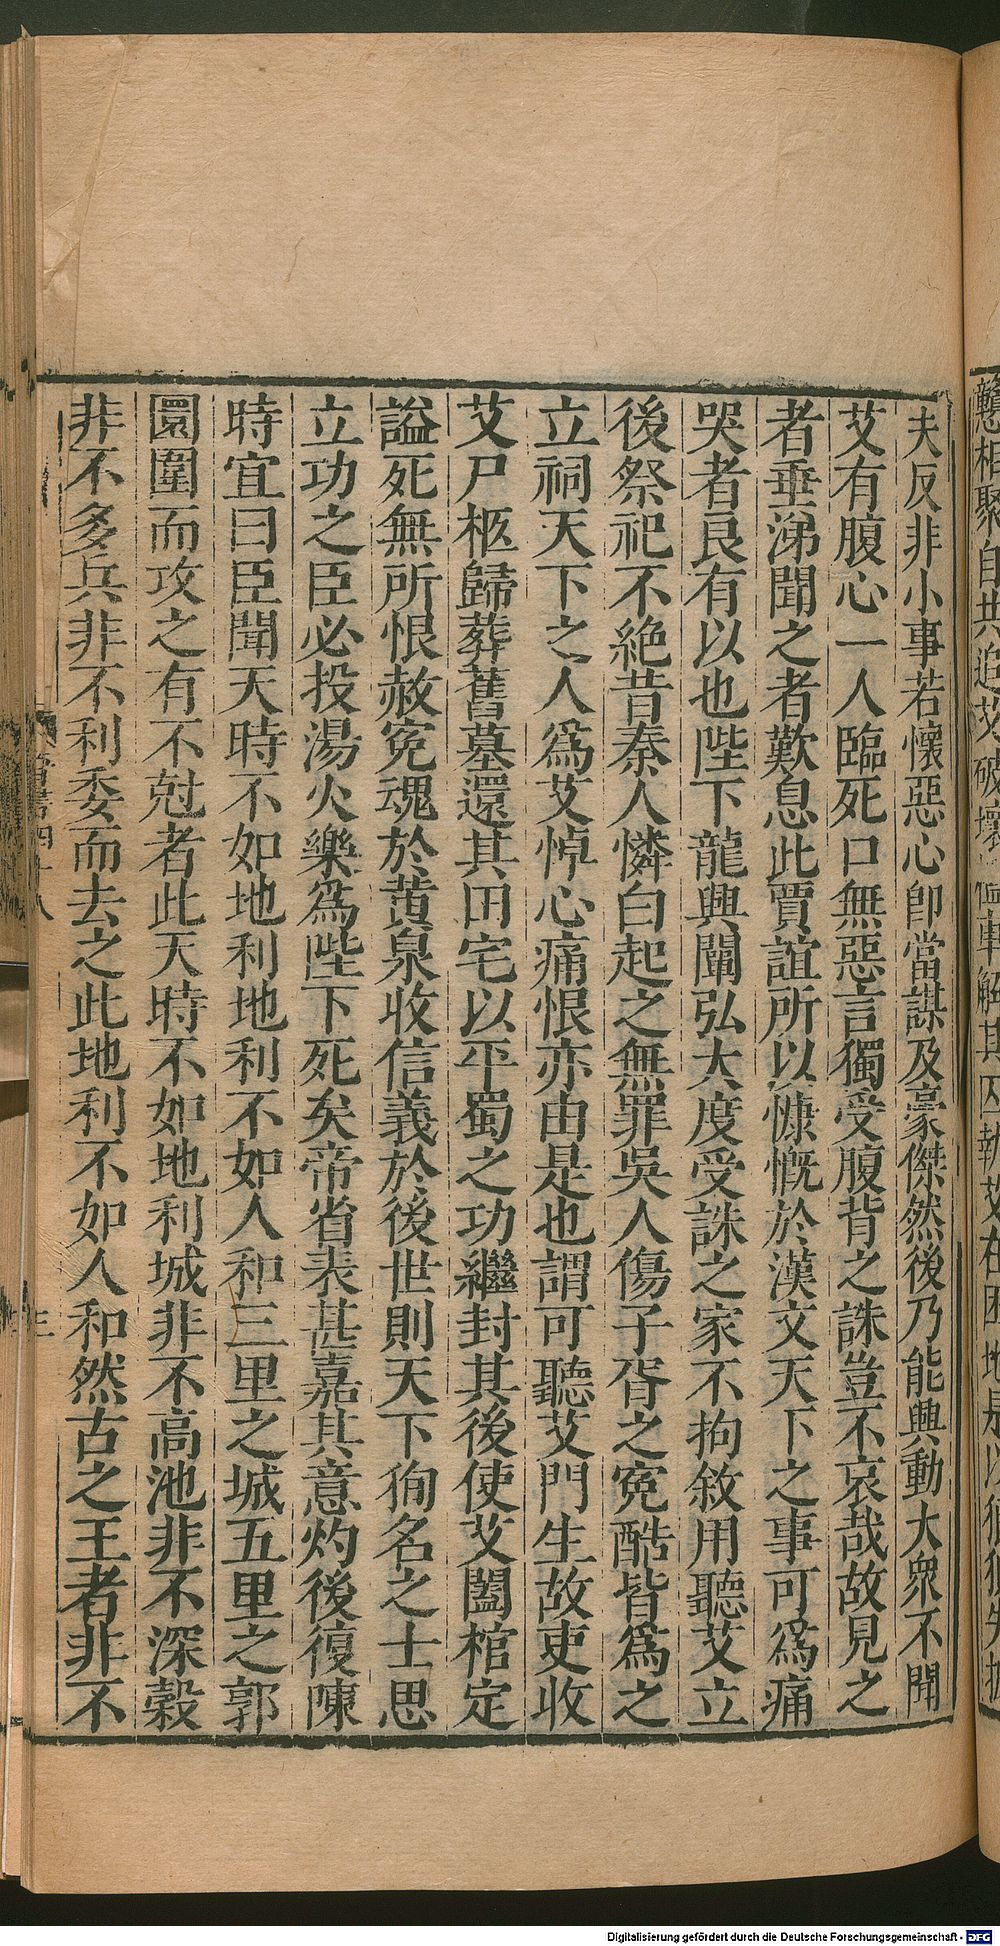 夫反非小事若懷惡心卽當謀及豪傑然後乃能興動大衆不聞
艾有腹心一人臨死口無惡言獨受腹背之誅豈不哀哉故見之
者垂涕聞之者歎息此賈誼所以慷慨於漢文天下之事可爲痛
哭者良有以也陛下龍興闡弘大度受誅之家不拘敘用聽艾立
後祭祀不絶昔秦人憐白起之無罪吳人傷子胥之冤酷皆爲之
立祠天下之人爲艾悼心痛恨亦由是也謂可聽艾門生故吏收
艾尸柩歸葬舊墓還其田宅以平蜀之功繼封其後使艾闔棺定
謚死無所恨赦冤魂於黄泉收信義於後世則天下徇名之士思
立功之臣必投湯火樂爲陛下死矣帝省表甚嘉其意灼後復陳
時宜曰臣聞天時不如地利地利不如人和三里之城五里之郭
圜圍而攻之有不尅者此天時不如地利城非不高池非不深穀
非不多兵非不利委而去之此地利不如人和然古之王者非不
晉書四十八
三
Digitalisierung gefördert durch die Deutsche Forschungsgemeinschaft - DFG